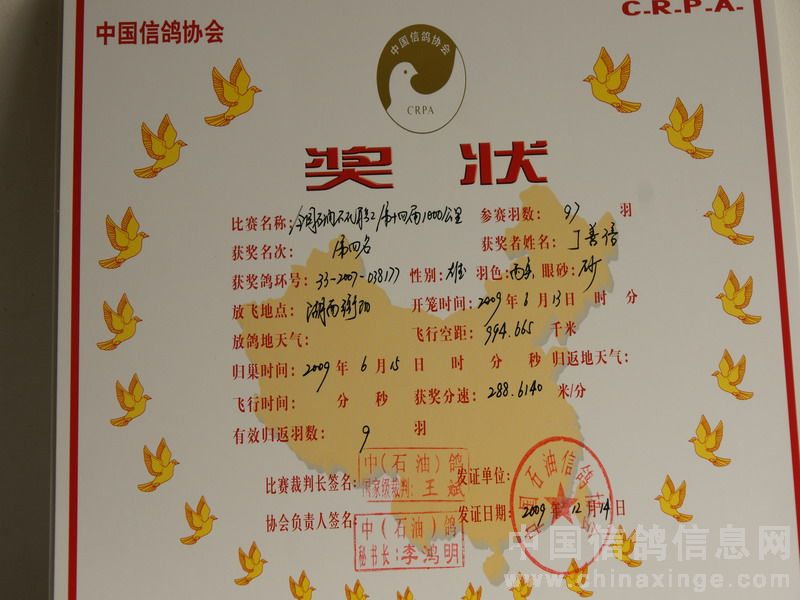 C-R-P-A-
中国信鸽协会
中国信鸽协会
CRPA
奖 状
比赛名称: 全国石油石化职工第十四届1000公里 参赛羽数: 97 羽
获奖名次: 第四名 获奖者姓名: 丁善培
获奖鸽环号: 33-2007-038177 性别: 雄 羽色: 雨点 眼砂: 砂
放飞地点: 湖南衡阳 开笼时间: 2009 年 6 月 13 日 时 分
放鸽地天气: 飞行空距: 994.665 千米
归巢时间: 2009 年 6 月 15 日 时 分 秒 归返地天气:
飞行时间: 分 秒 获奖分速: 288.6140 米/分
有效归返羽数: 9 羽
比赛裁判长签名: 发证单位:
中(石油)鸽
国家级裁判: 王斌
协会负责人签名: 发证日期: 2009 年 12 月 14 日
中(石油)鸽
秘书长: 李鸿明
国石油信鸽
中国信鸽信息网
www.chinaxinge.com